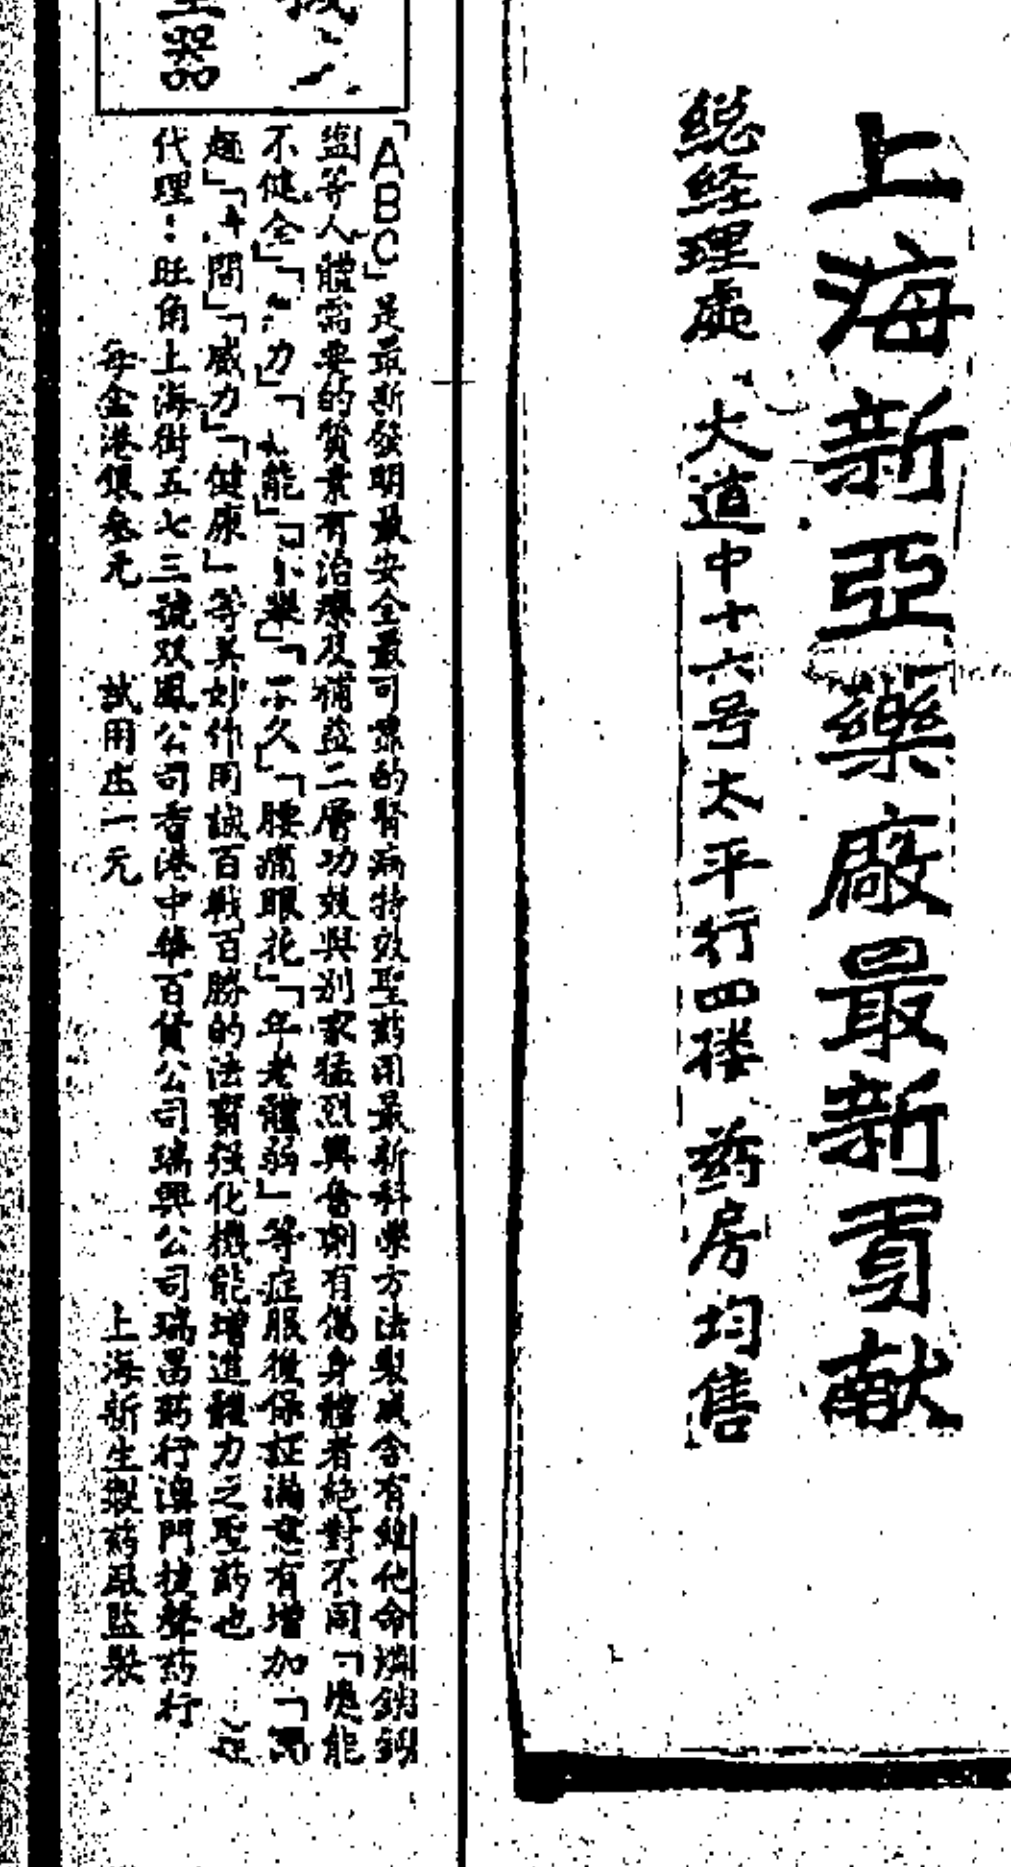 上海新亞藥廠最新貢献
総経理處 大道中十六号太平行四楼 药房均售
器
「ABC」是最新發明最安全最可靠的腎病特效聖药用最新科學方法製成含有維他命燐鈉鈣
鹽等人體需要的質素有治療及補益二層功效與別家猛烈興奮劑有傷身體者絕對不同「機能
不健全」「力」「能」「舉」「不久」「腰痛眼花」「年老體弱」等症服後保証滿意有增加「
趣」「間」「威力」「健康」等美妙作用誠百戰百勝的法寶强化機能增進體力之聖药也
代理：旺角上海街五七三號双鳳公司香港中華百貨公司瑞興公司瑞昌药行澳門聲药行
每盒港銀叁元 試用庄一元 上海新生製药廠監製